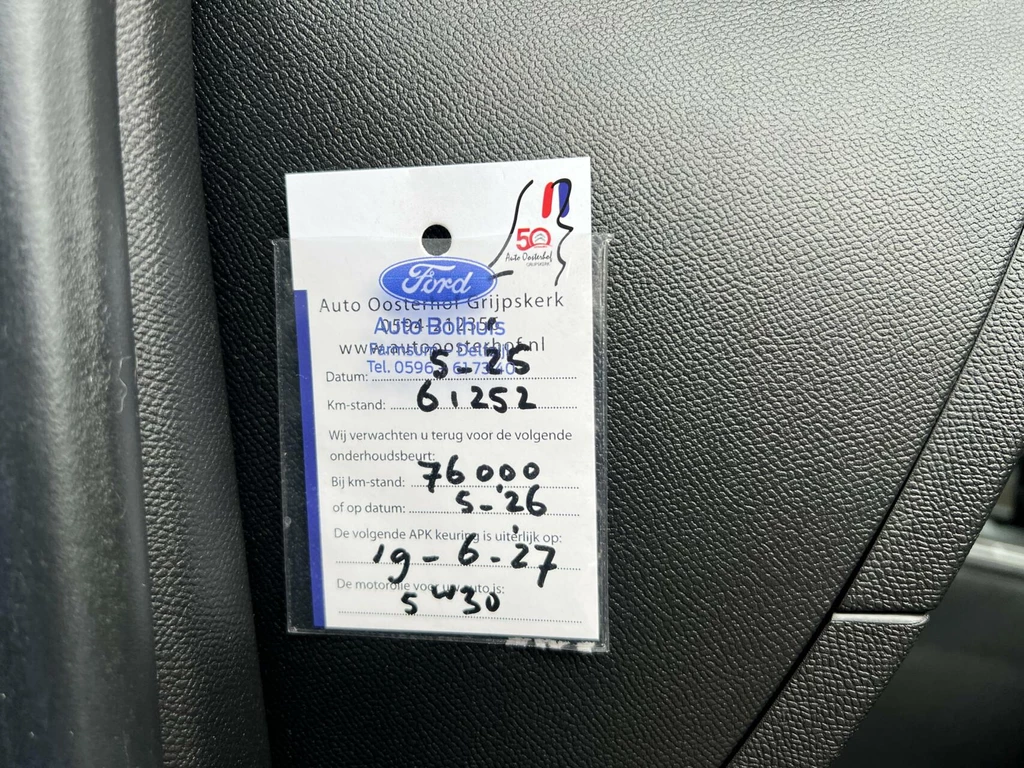 50
Auto Oosterhof
GRIJPSKERK
Ford
Auto Oosterhof Grijpskerk
Auto Bolhuis
www.autooosterhof.nl
Datum: 5-25
Km-stand: 61252
Wij verwachten u terug voor de volgende
onderhoudsbeurt:
Bij km-stand: 76000
of op datum: 5-26
De volgende APK keuring is uiterlijk op:
19-6-27
De motorolie voor uw auto is:
5W30